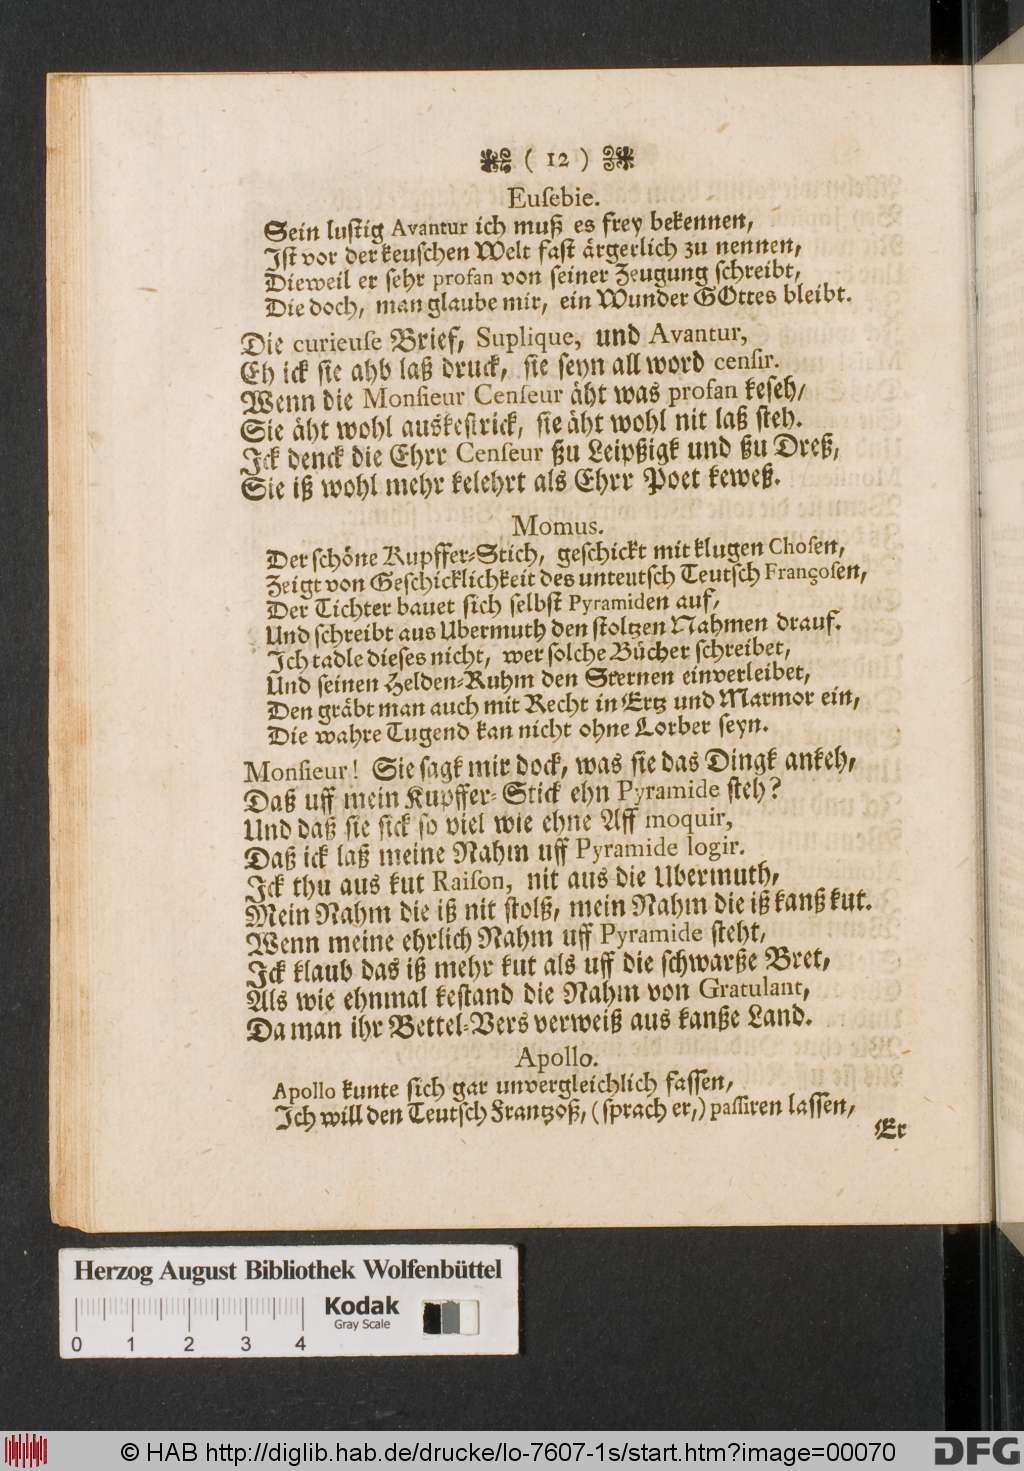 ( 12 )
Euſebie.
Sein luſtig Avantur ich muß es frey bekennen,
Iſt vor der keuſchen Welt faſt ärgerlich zu nennen,
Dieweil er ſehr profan von ſeiner Zeugung ſchreibt,
Die doch, man glaube mir, ein Wunder GOttes bleibt.
Die curieuſe Brief, Suplique, und Avantur,
Eh ick ſie ahb laß druck, ſie ſeyn all word cenſir.
Wenn die Monſieur Cenſeur äht was profan keſeh/
Sie äht wohl auskeſtrick, ſie äht wohl nit laß ſteh.
Ick denck die Ehrr Cenſeur ßu Leipßigk und ßu Dreß,
Sie iß wohl mehr kelehrt als Ehrr Poet keweß.
Momus.
Der ſchöne Kupffer-Stich, geſchickt mit klugen Choſen,
Zeigt von Geſchicklichkeit des unteutſch Teutſch Françoſen,
Der Tichter bauet ſich ſelbſt Pyramiden auf,
Und ſchreibt aus Ubermuth den ſtoltzen Nahmen drauf.
Ich tadle dieſes nicht, wer ſolche Bücher ſchreibet,
Und ſeinen Helden-Ruhm den Sternen einverleibet,
Den gräbt man auch mit Recht in Ertz und Marmor ein,
Die wahre Tugend kan nicht ohne Lorber ſeyn.
Monſieur! Sie ſagk mir dock, was ſie das Dingk ankeh,
Daß uff mein Kupffer-Stick ehn Pyramide ſteh?
Und daß ſie ſick ſo viel wie ehne Aff moquir,
Daß ick laß meine Nahm uff Pyramide logir.
Ick thu aus kut Raiſon, nit aus die Ubermuth,
Mein Nahm die iß nit ſtolß, mein Nahm die iß kanß kut.
Wenn meine ehrlich Nahm uff Pyramide ſteht,
Ick klaub das iß mehr kut als uff die ſchwarße Bret,
Als wie ehnmal keſtand die Nahm von Gratulant,
Da man ihr Bettel-Vers verweiß aus kanße Land.
Apollo.
Apollo kunte ſich gar unvergleichlich faſſen,
Ich will den Teutſch Frantzoß, (ſprach er,) paſſiren laſſen,
Er
Herzog August Bibliothek Wolfenbüttel
Kodak
Gray Scale
0 1 2 3 4
© HAB http://diglib.hab.de/drucke/lo-7607-1s/start.htm?image=00070
DFG